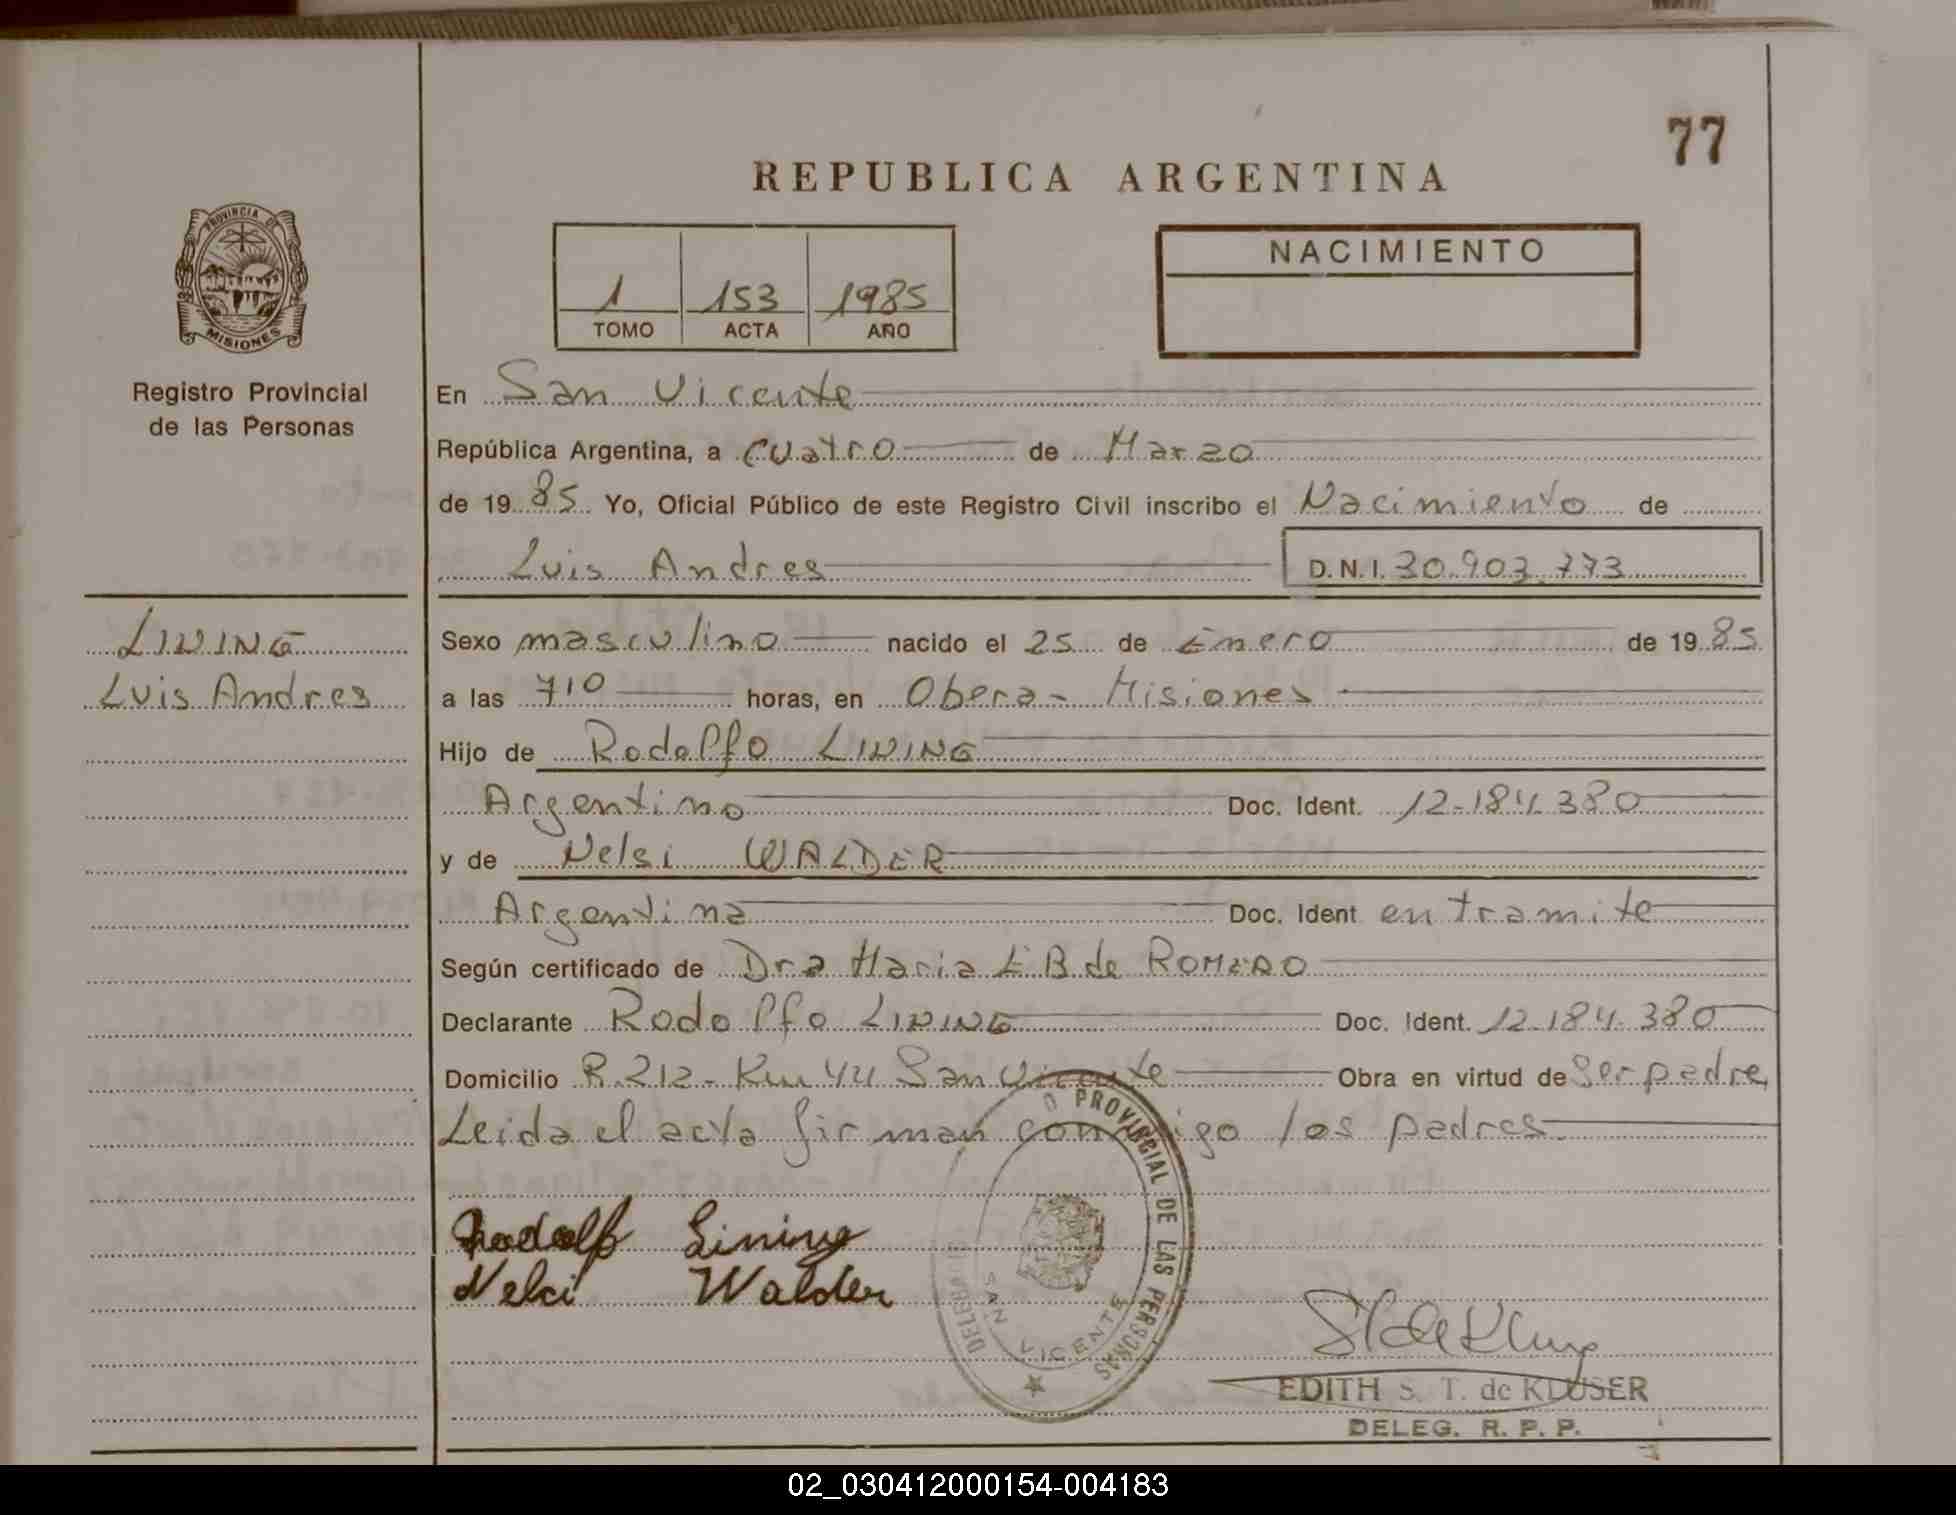 77
REPUBLICA ARGENTINA
PROVINCIA DE
MISIONES
Registro Provincial
de las Personas
1 153 1985
TOMO ACTA AÑO
NACIMIENTO
En San Vicente
República Argentina, a cuatro de Marzo
de 1985. Yo, Oficial Público de este Registro Civil inscribo el Nacimiento de
Luis Andres D.N.I. 30.903.773
LINING
Luis Andres
Sexo masculino nacido el 25 de Enero de 1985
a las 710 horas, en Obera - Misiones
Hijo de Rodolfo LINING
Argentino Doc. Ident. 12.184.380
y de Nelsi WALDER
Argentina Doc. Ident en tramite
Según certificado de Dra Maria E B de ROMERO
Declarante Rodolfo LINING Doc. Ident. 12.184.380
Domicilio R.212 - Km 44 San Vicente Obra en virtud de ser padre,
Leida el acta firman conmigo los padres
Rodolfo Lining
Nelci Walder
PROVINCIAL DE LAS PERSONAS
SAN VICENTE
EDITH S. T. de KLUSER
DELEG. R. P. P.
02_030412000154-004183